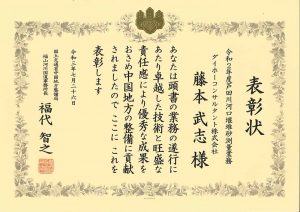 表彰状
令和2年度芦田川河口堰堆砂測量業務
ダイホーコンサルタント株式会社
藤本 武志 様
あなたは頭書の業務の遂行に
あたり卓越した技術と旺盛な
責任感により優秀な成果を
おさめ中国地方の整備に貢献
されましたので ここに これを
表彰します
令和三年七月二十六日
国土交通省中国地方整備局
福山河川国道事務所長
福代 智之